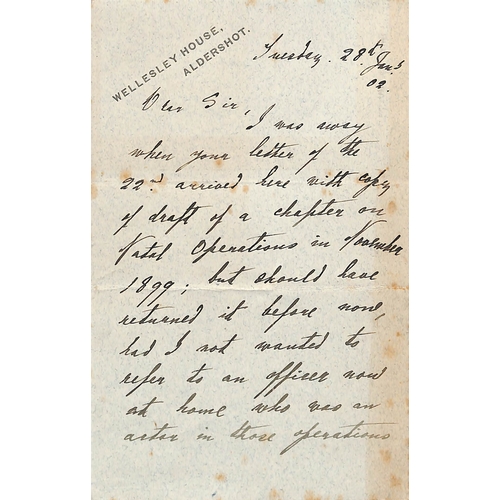 WELLESLEY HOUSE,
ALDERSHOT.
Tuesday. 28th Jany
02.
Dear Sir,
I was away
when your letter of the
22nd arrived here with copy
of draft of a chapter on
Natal Operations in November
1899; but should have
returned it before now,
had I not wanted to
refer to an officer now
at home who was an
actor in those operations